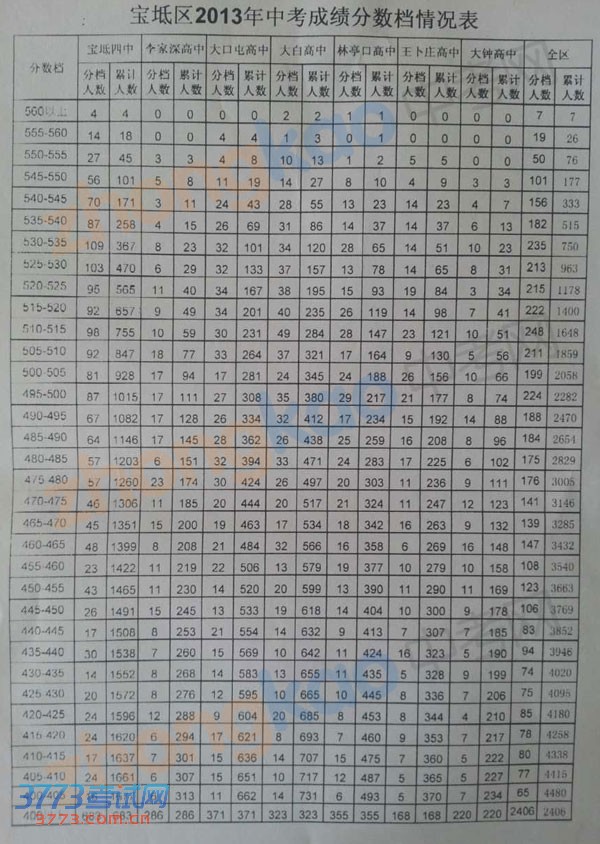 宝坻区2013年中考成绩分数档情况表
分数档 宝坻四中 李家深高中 大口屯高中 大白高中 林亭口高中 王卜庄高中 大钟高中 全区
分档人数 累计人数 分档人数 累计人数 分档人数 累计人数 分档人数 累计人数 分档人数 累计人数 分档人数 累计人数 分档人数 累计人数 分档人数 累计人数
560以上 4 4 0 0 0 0 2 2 1 1 0 0 0 0 7 7
555-560 14 18 0 0 4 4 1 3 0 1 0 0 0 0 19 26
550-555 27 45 3 3 4 8 10 13 1 2 5 5 0 0 50 76
545-550 56 101 5 8 11 19 14 27 8 10 4 9 3 3 101 177
540-545 70 171 3 11 24 43 28 55 13 23 14 23 4 7 156 333
535-540 87 258 4 15 26 69 31 86 14 37 14 37 6 13 182 515
530-535 109 367 8 23 32 101 34 120 28 65 14 51 10 23 235 750
525-530 103 470 6 29 32 133 37 157 13 78 14 65 8 31 213 963
520-525 95 565 11 40 34 167 38 195 15 93 19 84 3 34 215 1178
515-520 92 657 9 49 34 201 40 235 26 119 14 98 7 41 222 1400
510-515 98 755 10 59 30 231 49 284 28 147 23 121 10 51 248 1648
505-510 92 847 18 77 33 264 37 321 17 164 9 130 5 56 211 1859
500-505 81 928 17 94 17 281 24 345 24 188 26 156 10 66 199 2058
495-500 87 1015 17 111 27 308 35 380 29 217 21 177 8 74 224 2282
490-495 67 1082 17 128 26 334 32 412 17 234 15 192 14 88 188 2470
485-490 64 1146 17 145 28 362 26 438 25 259 16 208 8 96 184 2654
480-485 57 1203 6 151 32 394 33 471 24 283 17 225 6 102 175 2829
475-480 57 1260 23 174 30 424 26 497 20 303 11 236 9 111 176 3005
470-475 46 1306 11 185 20 444 20 517 21 324 11 247 12 123 141 3146
465-470 45 1351 15 200 19 463 17 534 18 342 16 263 9 132 139 3285
460-465 48 1399 8 208 21 484 32 566 16 358 6 269 16 148 147 3432
455-460 23 1422 11 219 22 506 13 579 19 377 10 279 10 158 108 3540
450-455 43 1465 11 230 14 520 20 599 13 390 11 290 11 169 123 3663
445-450 26 1491 15 245 13 533 19 618 14 404 10 300 9 178 106 3769
440-445 17 1508 8 253 21 554 14 632 9 413 7 307 7 185 83 3852
435-440 30 1538 7 260 15 569 10 642 11 424 16 323 5 190 94 3946
430-435 14 1552 8 268 14 583 13 655 11 435 5 328 9 199 74 4020
425-430 20 1572 8 276 12 595 10 665 10 445 8 336 7 206 75 4095
420-425 24 1596 12 288 9 604 20 685 8 453 8 344 4 210 85 4180
415-420 24 1620 6 294 17 621 8 693 7 460 9 353 7 217 78 4258
410-415 17 1637 7 301 15 636 14 707 15 475 7 360 5 222 80 4338
405-410 24 1661 6 307 15 651 10 717 12 487 5 365 5 227 77 4415
313 11 662 14 731 6 493 5 370 7 234 65 4480
286 286 371 371 323 323 355 355 168 168 220 220 2406 2406
zhongkao中考网
3773考试网
3773.com.cn